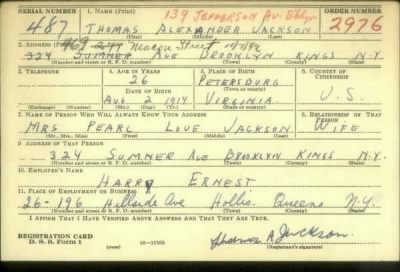 SERIAL NUMBER 1. NAME (Print) 139 JEFFERSON AV. Bklyn ORDER NUMBER
487 THOMAS ALEXANDER JACKSON 2976
(First) (Middle) (Last)
2. ADDRESS (Print) 469 Macon Street
324 SUMNER AVE BROOKLYN KINGS N.Y.
(Number and street or R. F. D. number) (Town) (County) (State)
3. TELEPHONE 4. AGE IN YEARS 5. PLACE OF BIRTH 6. COUNTRY OF CITIZENSHIP
26 PETERSBURG
DATE OF BIRTH (Town or county)
AUG 2 1914 VIRGINIA U.S.
(Exchange) (Number) (Mo.) (Day) (Yr.) (State or country)
7. NAME OF PERSON WHO WILL ALWAYS KNOW YOUR ADDRESS 8. RELATIONSHIP OF THAT PERSON
MRS PEARL LOUE JACKSON WIFE
(Mr., Mrs., Miss) (First) (Middle) (Last)
9. ADDRESS OF THAT PERSON
324 SUMNER AVE BROOKLYN KINGS N.Y.
(Number and street or R. F. D. number) (Town) (County) (State)
10. EMPLOYER'S NAME
HARRY ERNEST
11. PLACE OF EMPLOYMENT OR BUSINESS
26-196 Hillside Ave Hollis Queens N.Y.
(Number and street or R. F. D. number) (Town) (County) (State)
I AFFIRM THAT I HAVE VERIFIED ABOVE ANSWERS AND THAT THEY ARE TRUE.
REGISTRATION CARD
D. S. S. Form 1 (over) 16-17105 Thomas A Jackson
(Registrant's signature)